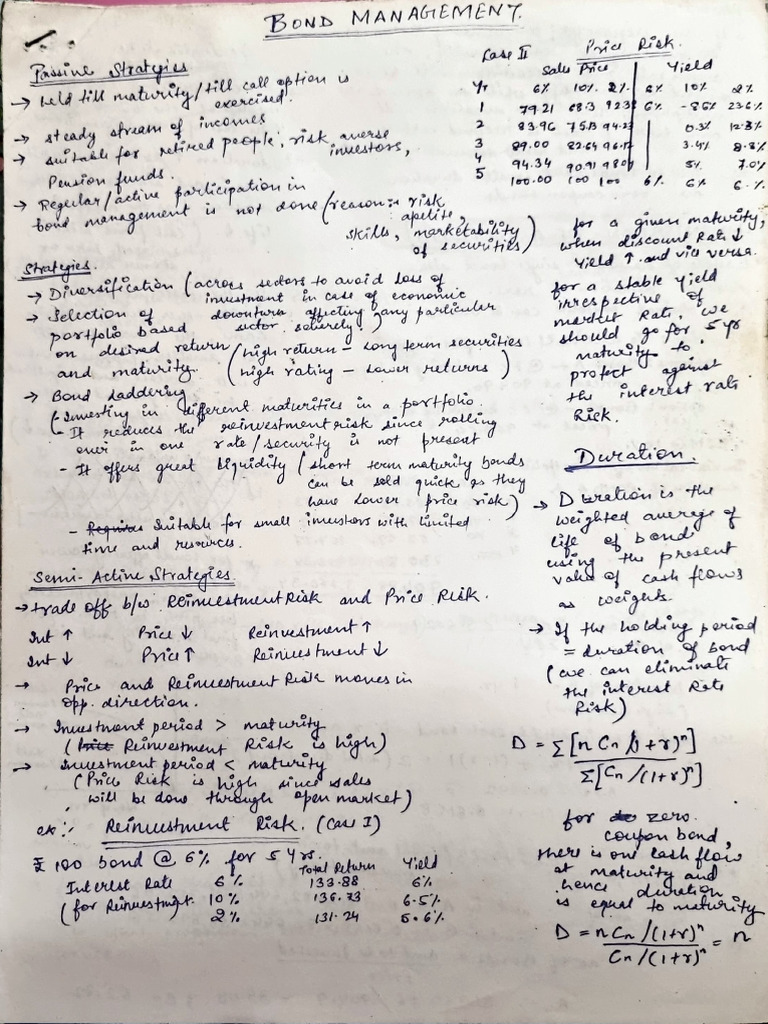 BOND MANAGEMENT.
Passive Strategies
→ held till maturity/till call option is
exercised.
→ steady stream of incomes
→ suitable for retired people, risk averse
investors,
Pension funds.
→ Regular/active participation in
bond management is not done (reason:- risk
apetite,
skills, marketability
of securities)
Strategies.
→ Diversification (across sectors to avoid loss of
investment in case of economic
downturn affecting any particular
sector severely)
→ Selection of
portfolio based
on desired return
and maturity.
(high return – long term securities
high rating – lower returns)
→ Bond laddering
(Investing in different maturities in a portfolio.
- It reduces the reinvestment risk since rolling
over in one rate/security is not present
- It offers great liquidity (short term maturity bonds
can be sold quick as they
have lower price risk)
- Suitable for small investors with limited
time and resources.
Semi-Active Strategies.
→ trade off b/w Reinvestment Risk and Price Risk.
Int ↑ Price ↓ Reinvestment ↑
Int ↓ Price ↑ Reinvestment ↓
→ Price and Reinvestment Risk moves in
opp. direction.
→ Investment period > maturity
(Reinvestment Risk is high)
→ Investment period < maturity
(Price Risk is high since sales
will be done through open market)
ex:- Reinvestment Risk. (Case I)
₹ 100 bond @ 6% for 5 Yrs.
Total Return Yield
Interest Rate 6% 133.88 6%
(for Reinvestmt. 10% 136.73 6.5%
2% 131.24 5.6%
Case II Price Risk.
Sales Price Yield
Yr 6% 10% 2% 6% 10% 2%
1 79.21 68.3 92.38 6% -8.6% 23.6%
2 83.96 75.13 94.23 0.3% 12.3%
3 89.00 82.64 96.12 3.4% 8.8%
4 94.34 90.91 98.04 5% 7.0%
5 100.00 100 100 6% 6% 6%
for a given maturity,
when discount Rate ↓
Yield ↑ and vice versa.
for a stable yield
irrespective of
market Rate, we
should go for 5 yr
maturity to
protect against
the interest rate
Risk.
Duration.
→ Duration is the
weighted average of
life of bond
using the present
value of cash flows
as weights.
→ If the holding period
= duration of bond
(we can eliminate
the interest Rate
Risk)
D = Σ[n Cn/(1+r)ⁿ]
Σ[Cn/(1+r)ⁿ]
for zero
coupon bond,
there is one cash flow
at maturity and
hence duration
is equal to maturity
D = nCn/(1+r)ⁿ = n
Cn/(1+r)ⁿ